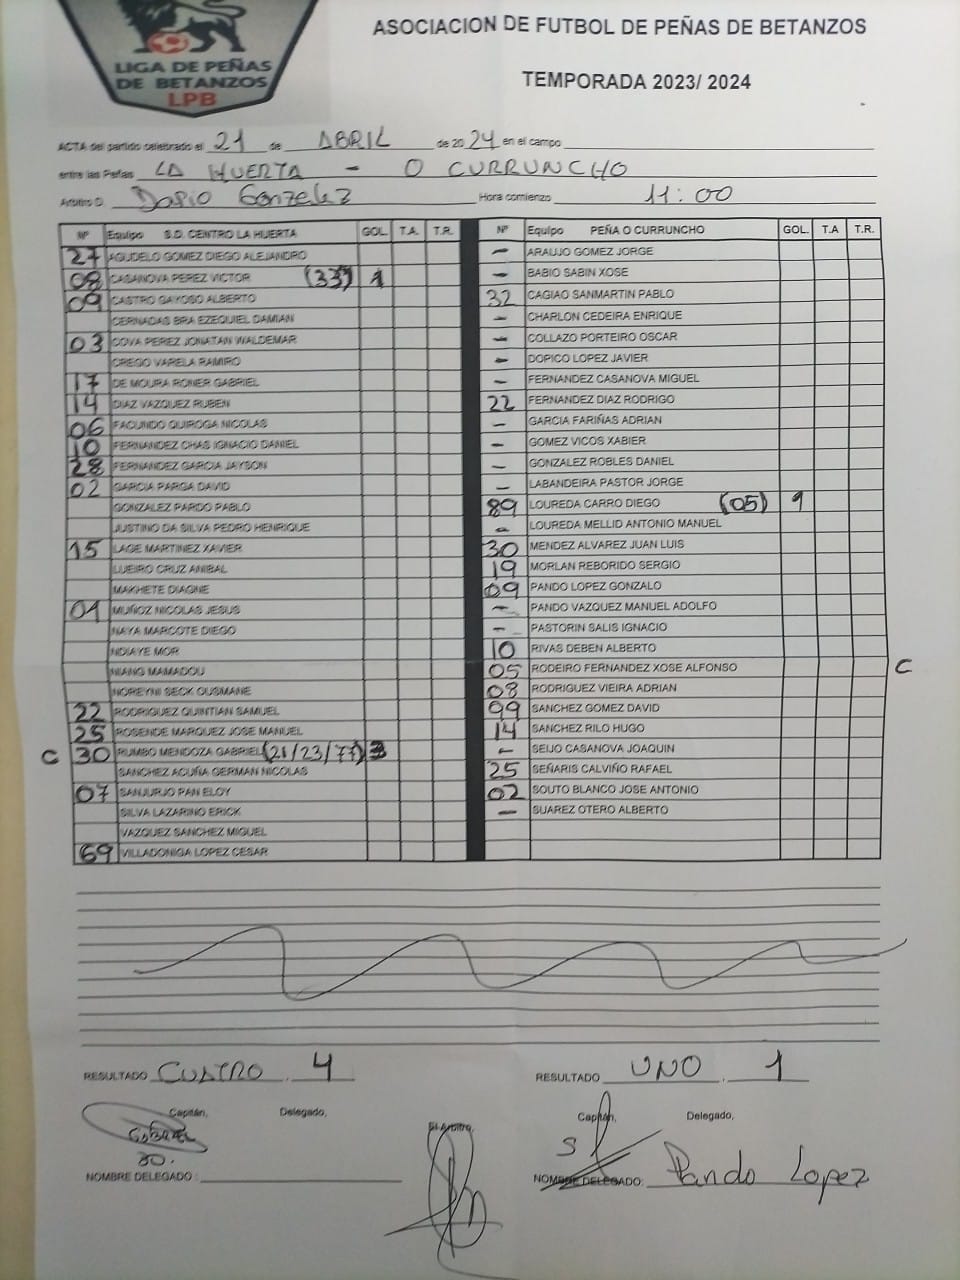 ASOCIACION DE FUTBOL DE PEÑAS DE BETANZOS
LIGA DE PEÑAS
DE BETANZOS
LPB
TEMPORADA 2023/ 2024
ACTA del partido celebrado el 21 de ABRIL de 2024 en el campo
entre las Peñas LA HUERTA - O CURRUNCHO
Arbitro D. Dario Gonzalez Hora comienzo 11:00
Nº Equipo S.D. CENTRO LA HUERTA GOL. T.A. T.R. Nº Equipo PEÑA O CURRUNCHO GOL. T.A T.R.
27 AGUDELO GOMEZ DIEGO ALEJANDRO - ARAUJO GOMEZ JORGE
08 CASANOVA PEREZ VICTOR (33) 1 - BABIO SABIN XOSE
09 CASTRO GAYOSO ALBERTO 32 CAGIAO SANMARTIN PABLO
CERNADAS BRA EZEQUIEL DAMIAN - CHARLON CEDEIRA ENRIQUE
03 COVA PEREZ JONATAN WALDEMAR - COLLAZO PORTEIRO OSCAR
CREGO VARELA RAMIRO - DOPICO LOPEZ JAVIER
17 DE MOURA RONER GABRIEL - FERNANDEZ CASANOVA MIGUEL
14 DIAZ VAZQUEZ RUBEN 22 FERNANDEZ DIAZ RODRIGO
06 FACUNDO QUIROGA NICOLAS - GARCIA FARIÑAS ADRIAN
10 FERNANDEZ CHAS IGNACIO DANIEL - GOMEZ VICOS XABIER
28 FERNANDEZ GARCIA JAYSON - GONZALEZ ROBLES DANIEL
02 GARCIA PARGA DAVID - LABANDEIRA PASTOR JORGE
GONZALEZ PARDO PABLO 89 LOUREDA CARRO DIEGO (05) 1
JUSTINO DA SILVA PEDRO HENRIQUE - LOUREDA MELLID ANTONIO MANUEL
15 LAGE MARTINEZ XAVIER 30 MENDEZ ALVAREZ JUAN LUIS
LUEIRO CRUZ ANIBAL 19 MORLAN REBORIDO SERGIO
MAKHETE DIAGNE 09 PANDO LOPEZ GONZALO
01 MUÑOZ NICOLAS JESUS - PANDO VAZQUEZ MANUEL ADOLFO
NAYA MARCOTE DIEGO - PASTORIN SALIS IGNACIO
NDIAYE MOR 10 RIVAS DEBEN ALBERTO
NIANG MAMADOU 05 RODEIRO FERNANDEZ XOSE ALFONSO C
NOREYNI SECK OUSMANE 08 RODRIGUEZ VIEIRA ADRIAN
22 RODRIGUEZ QUINTIAN SAMUEL 99 SANCHEZ GOMEZ DAVID
25 ROSENDE MARQUEZ JOSE MANUEL 14 SANCHEZ RILO HUGO
C 30 RUMBO MENDOZA GABRIEL (21/23/77) 3 - SEIJO CASANOVA JOAQUIN
SANCHEZ ACUÑA GERMAN NICOLAS 25 SEÑARIS CALVIÑO RAFAEL
07 SANJURJO PAN ELOY 02 SOUTO BLANCO JOSE ANTONIO
SILVA LAZARINO ERICK - SUAREZ OTERO ALBERTO
VAZQUEZ SANCHEZ MIGUEL
69 VILLADONIGA LOPEZ CESAR
RESULTADO CUATRO . 4 RESULTADO UNO . 1
Capitán, Delegado, El Arbitro, Capitán, Delegado,
GABRIEL
30.
NOMBRE DELEGADO : NOMBRE DELEGADO: Pando Lopez